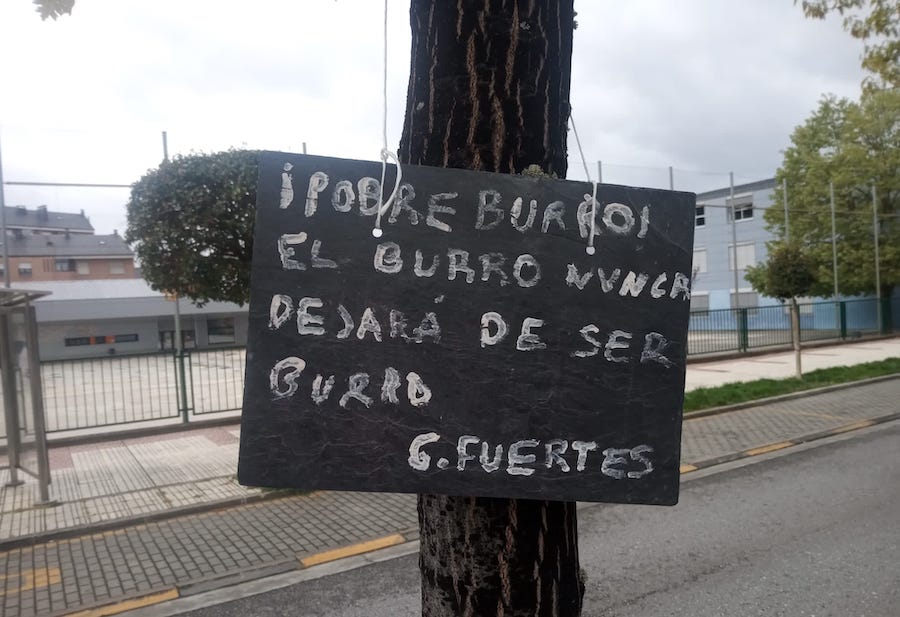 ¡POBRE BURRO!
EL BURRO NUNCA
DEJARÁ DE DE SER
BURRO
G. FUERTES